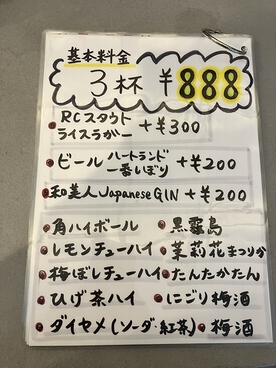 基本料金
3杯 ¥888
RCスタウト
ライスラガー +¥300
ビール ハートランド
一番しぼり +¥200
和美人 Japanese GIN +¥200
角ハイボール
黒霧島
レモンチューハイ
茉莉花まつりか
梅ぼしチューハイ
たんたかたん
ひげ茶ハイ
にごり梅酒
ダイヤメ(ソーダ・紅茶)
梅酒